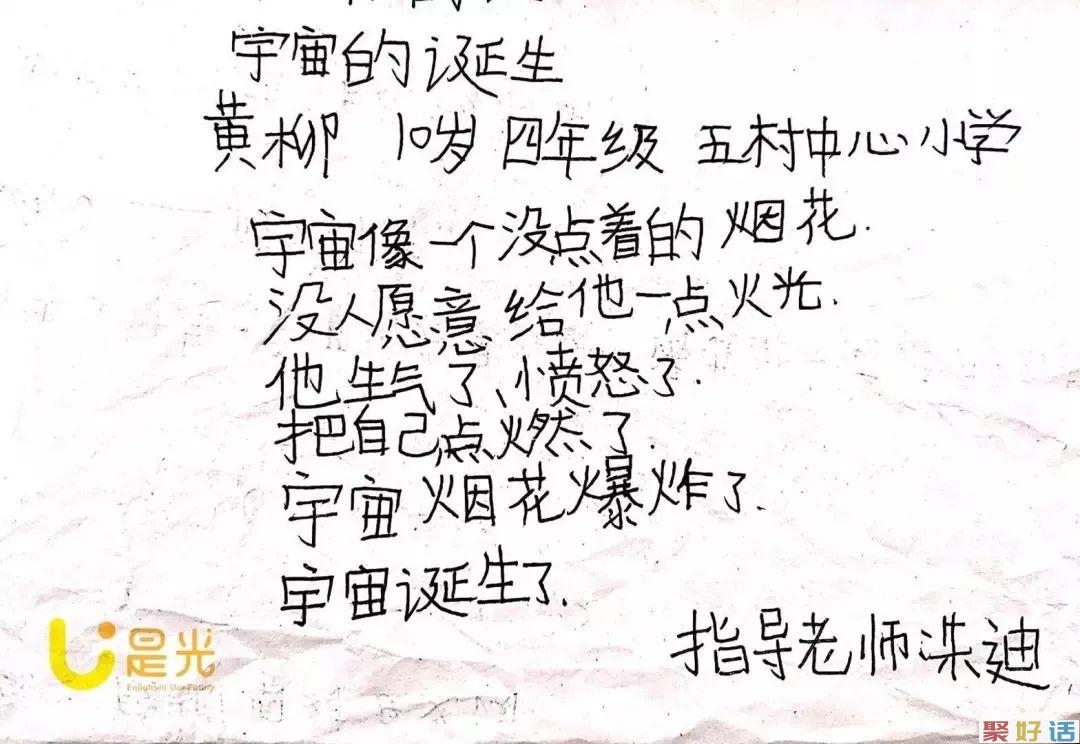 宇宙的诞生
黄柳 10岁 四年级 五村中心小学
宇宙像一个没点着的烟花.
没人愿意给他一点火光.
他生气了、愤怒了.
把自己点燃了.
宇宙烟花爆炸了.
宇宙诞生了.
指导老师 迪
是光
Enlighten Our Future
聚好话